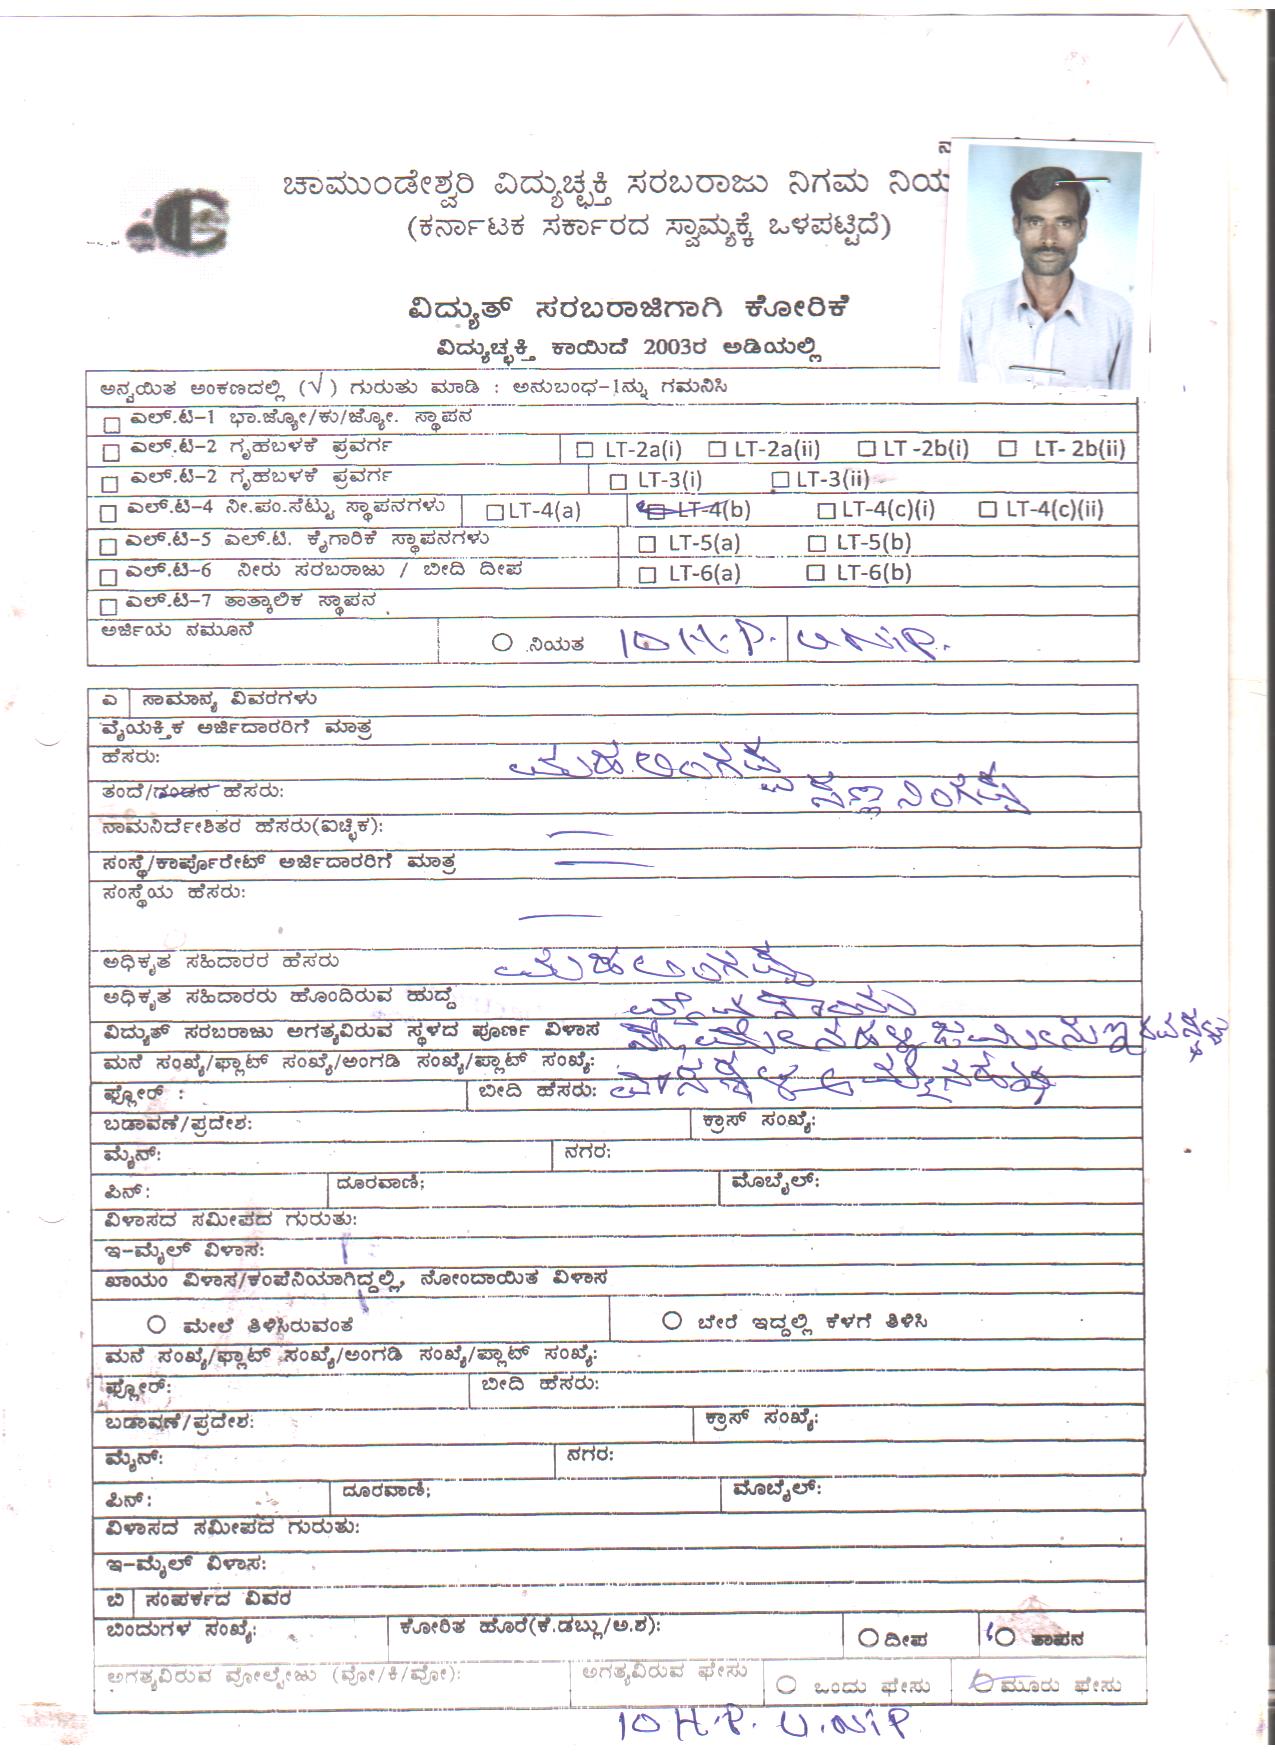 ಚಾಮುಂಡೇಶ್ವರಿ ವಿದ್ಯುಚ್ಛಕ್ತಿ ಸರಬರಾಜು ನಿಗಮ ನಿಯ
(ಕರ್ನಾಟಕ ಸರ್ಕಾರದ ಸ್ವಾಮ್ಯಕ್ಕೆ ಒಳಪಟ್ಟಿದೆ)
ವಿದ್ಯುತ್ ಸರಬರಾಜಿಗಾಗಿ ಕೋರಿಕೆ
ವಿದ್ಯುಚ್ಛಕ್ತಿ ಕಾಯಿದೆ 2003ರ ಅಡಿಯಲ್ಲಿ
ಅನ್ವಯಿತ ಅಂಕಣದಲ್ಲಿ (√) ಗುರುತು ಮಾಡಿ : ಅನುಬಂಧ-1ನ್ನು ಗಮನಿಸಿ
ಎಲ್.ಟಿ-1 ಭಾ.ಜ್ಯೋ/ಕು/ಜ್ಯೋ. ಸ್ಥಾಪನ
ಎಲ್.ಟಿ-2 ಗೃಹಬಳಕೆ ಪ್ರವರ್ಗ LT-2a(i) LT-2a(ii) LT -2b(i) LT- 2b(ii)
ಎಲ್.ಟಿ-2 ಗೃಹಬಳಕೆ ಪ್ರವರ್ಗ LT-3(i) LT-3(ii)
ಎಲ್.ಟಿ-4 ನೀ.ಪಂ.ಸೆಟ್ಟು ಸ್ಥಾಪನಗಳು LT-4(a) LT-4(b) LT-4(c)(i) LT-4(c)(ii)
ಎಲ್.ಟಿ-5 ಎಲ್.ಟಿ. ಕೈಗಾರಿಕೆ ಸ್ಥಾಪನಗಳು LT-5(a) LT-5(b)
ಎಲ್.ಟಿ-6 ನೀರು ಸರಬರಾಜು / ಬೀದಿ ದೀಪ LT-6(a) LT-6(b)
ಎಲ್.ಟಿ-7 ತಾತ್ಕಾಲಿಕ ಸ್ಥಾಪನ
ಅರ್ಜಿಯ ನಮೂನೆ ನಿಯತ 10 H.P. U.NiP.
ಎ ಸಾಮಾನ್ಯ ವಿವರಗಳು
ವೈಯಕ್ತಿಕ ಅರ್ಜಿದಾರರಿಗೆ ಮಾತ್ರ
ಹೆಸರು: ಮಹಲಿಂಗಪ್ಪ
ತಂದೆ/ಗಂಡನ ಹೆಸರು: ಸಣ್ಣ ನಿಂಗಪ್ಪ
ನಾಮನಿರ್ದೇಶಿತರ ಹೆಸರು(ಐಚ್ಛಿಕ):
ಸಂಸ್ಥೆ/ಕಾರ್ಪೊರೇಟ್ ಅರ್ಜಿದಾರರಿಗೆ ಮಾತ್ರ
ಸಂಸ್ಥೆಯ ಹೆಸರು:
ಅಧಿಕೃತ ಸಹಿದಾರರ ಹೆಸರು ಮಹಲಿಂಗಪ್ಪ
ಅಧಿಕೃತ ಸಹಿದಾರರು ಹೊಂದಿರುವ ಹುದ್ದೆ
ವಿದ್ಯುತ್ ಸರಬರಾಜು ಅಗತ್ಯವಿರುವ ಸ್ಥಳದ ಪೂರ್ಣ ವಿಳಾಸ
ಮನೆ ಸಂಖ್ಯೆ/ಫ್ಲಾಟ್ ಸಂಖ್ಯೆ/ಅಂಗಡಿ ಸಂಖ್ಯೆ/ಪ್ಲಾಟ್ ಸಂಖ್ಯೆ:
ಫ್ಲೋರ್ : ಬೀದಿ ಹೆಸರು:
ಬಡಾವಣೆ/ಪ್ರದೇಶ: ಕ್ರಾಸ್ ಸಂಖ್ಯೆ:
ಮೈನ್: ನಗರ:
ಪಿನ್: ದೂರವಾಣಿ; ಮೊಬೈಲ್:
ವಿಳಾಸದ ಸಮೀಪದ ಗುರುತು:
ಇ-ಮೈಲ್ ವಿಳಾಸ:
ಖಾಯಂ ವಿಳಾಸ/ಕಂಪೆನಿಯಾಗಿದ್ದಲ್ಲಿ, ನೋಂದಾಯಿತ ವಿಳಾಸ
ಮೇಲೆ ತಿಳಿಸಿರುವಂತೆ ಬೇರೆ ಇದ್ದಲ್ಲಿ ಕೆಳಗೆ ತಿಳಿಸಿ
ಮನೆ ಸಂಖ್ಯೆ/ಫ್ಲಾಟ್ ಸಂಖ್ಯೆ/ಅಂಗಡಿ ಸಂಖ್ಯೆ/ಪ್ಲಾಟ್ ಸಂಖ್ಯೆ:
ಫ್ಲೋರ್: ಬೀದಿ ಹೆಸರು:
ಬಡಾವಣೆ/ಪ್ರದೇಶ: ಕ್ರಾಸ್ ಸಂಖ್ಯೆ:
ಮೈನ್: ನಗರ:
ಪಿನ್: ದೂರವಾಣಿ; ಮೊಬೈಲ್:
ವಿಳಾಸದ ಸಮೀಪದ ಗುರುತು:
ಇ-ಮೈಲ್ ವಿಳಾಸ:
ಬಿ ಸಂಪರ್ಕದ ವಿವರ
ಬಿಂದುಗಳ ಸಂಖ್ಯೆ: ಕೋರಿತ ಹೊರೆ(ಕೆ.ಡಬ್ಲ್ಯು/ಅ.ಶ): ದೀಪ ತಾಪನ
ಅಗತ್ಯವಿರುವ ವೋಲ್ಟೇಜು (ವೋ/ಕಿ/ವೋ): ಅಗತ್ಯವಿರುವ ಫೇಸು ಒಂದು ಫೇಸು ಮೂರು ಫೇಸು
10 H.P. U.NiP